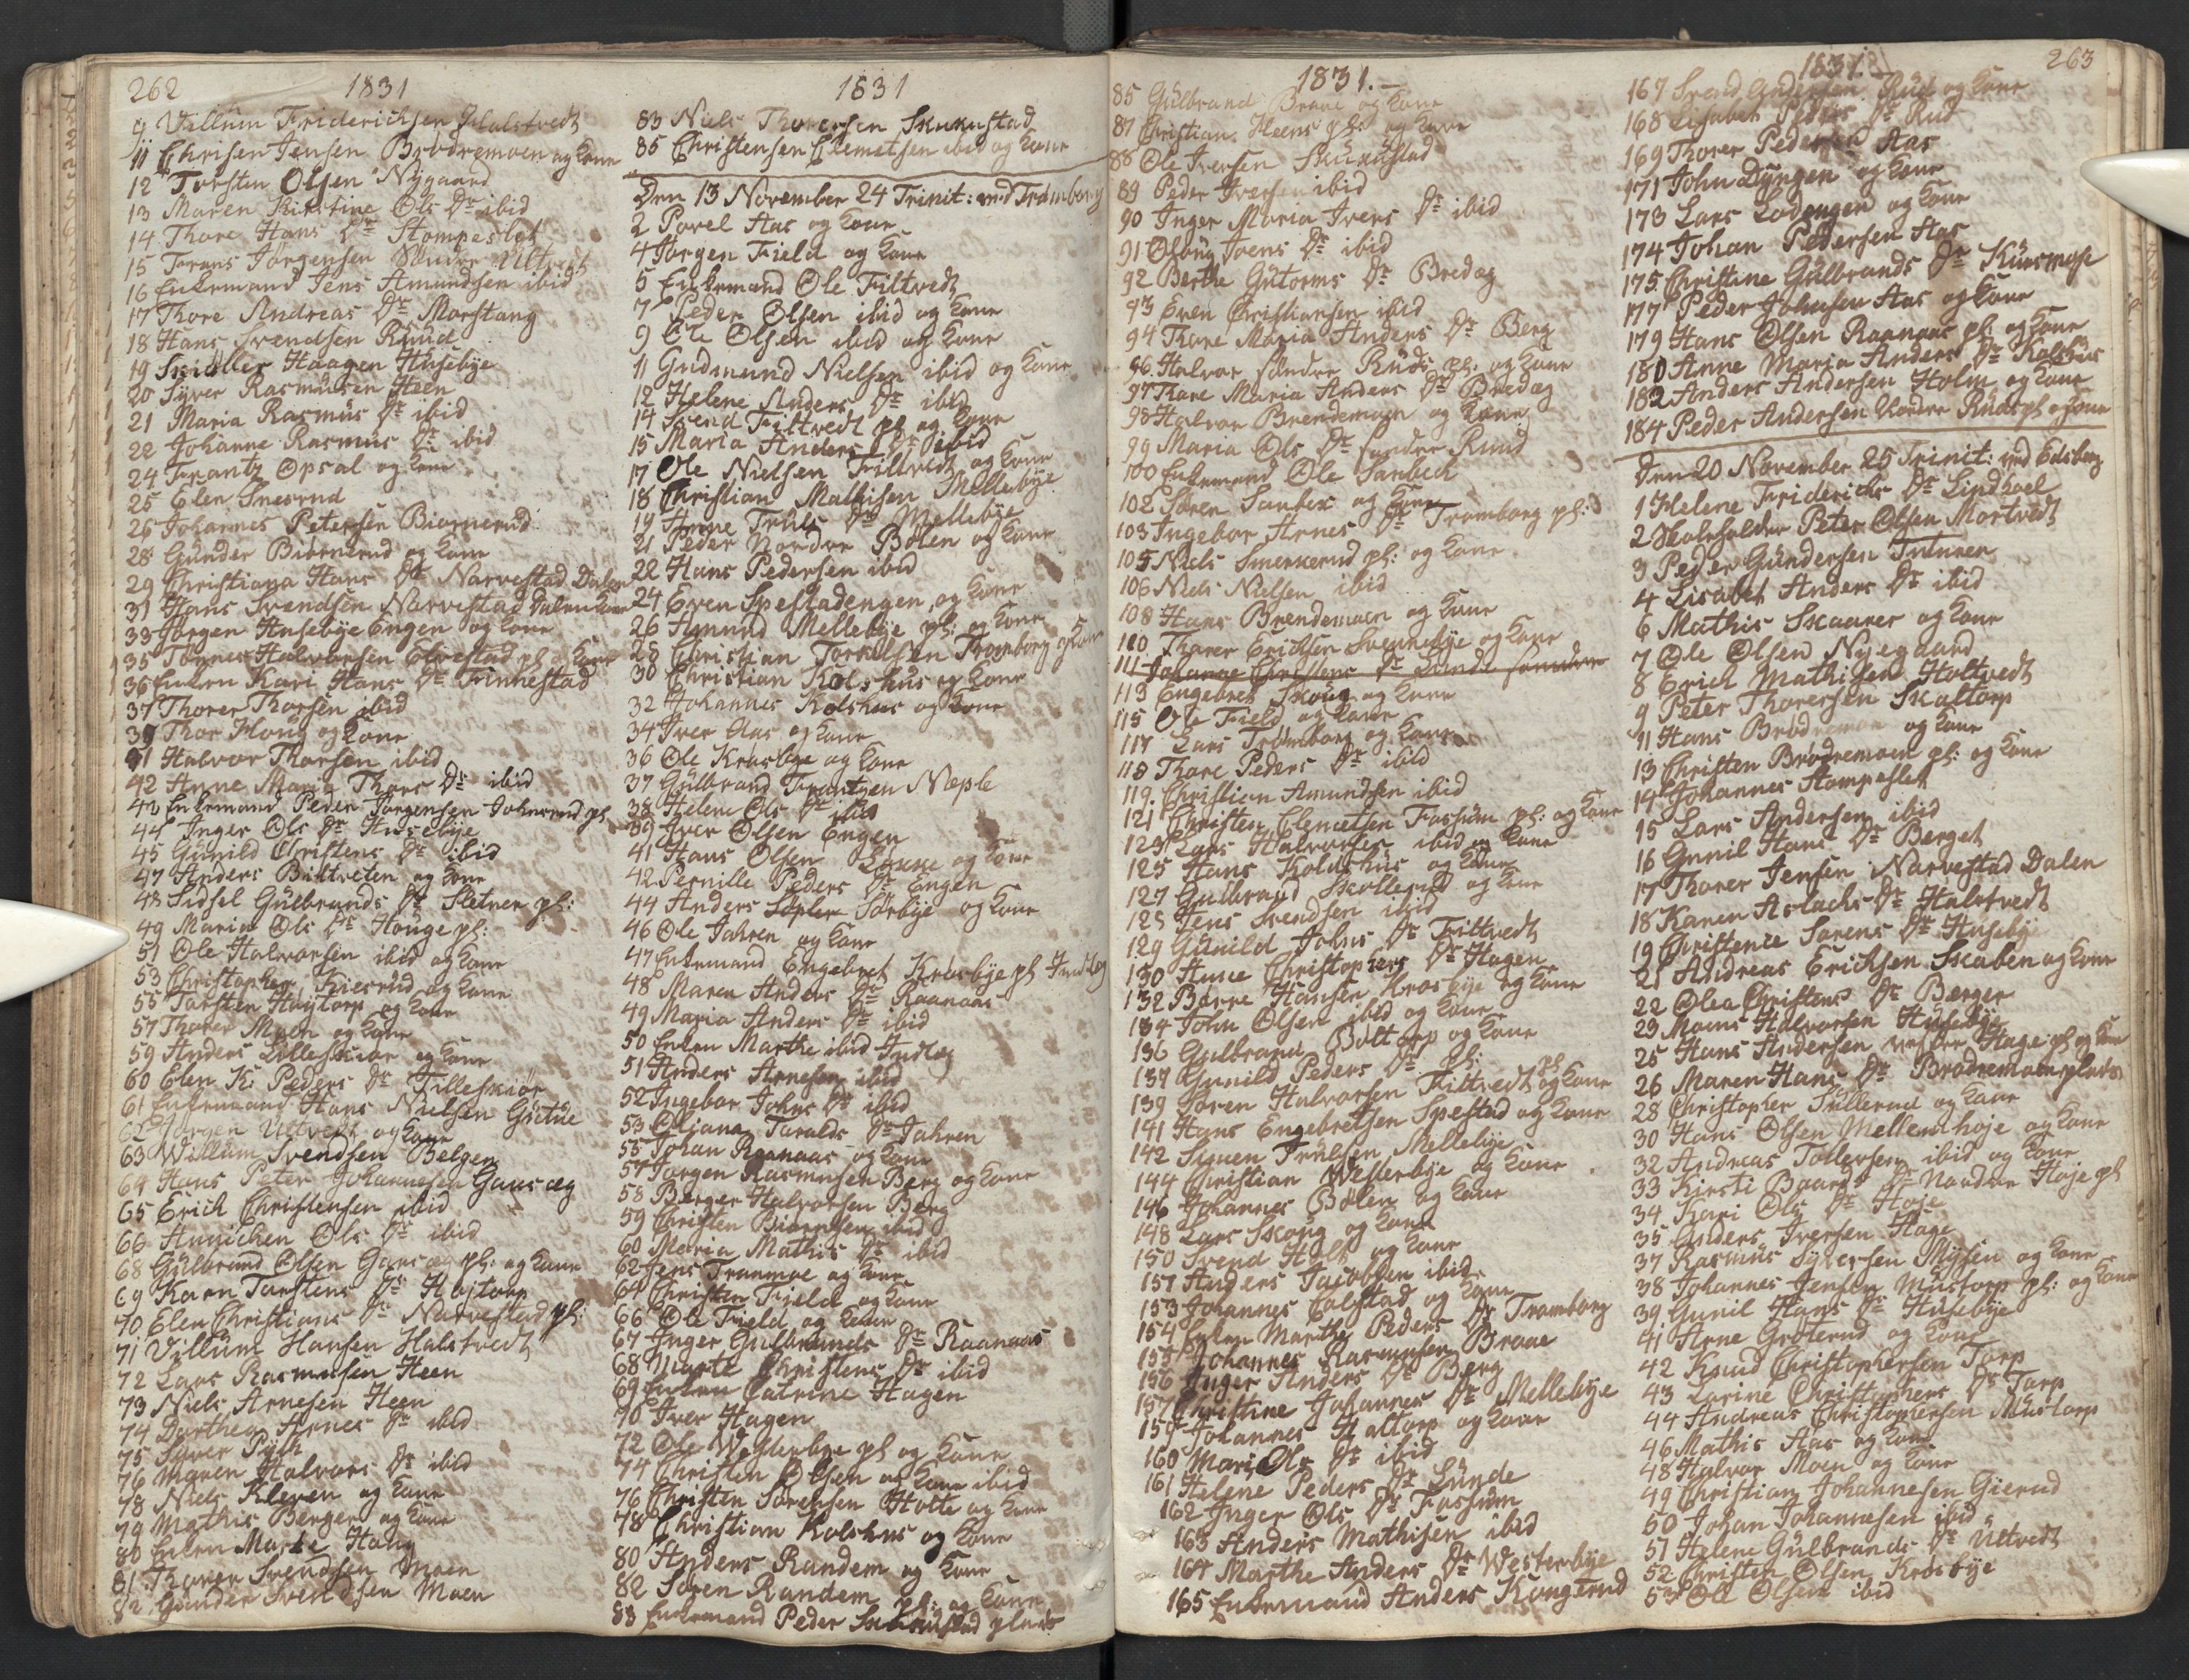 262 1831
9 Villum Friderichsen Halstvedt
11 Chrisen Jensen Brödremoen og Kone
12 Torsten Olsen Nygaard
13 Maren Kirstine Ols Dr ibid
14 Thore Hans Dr Stompeslet
15 Frans Jörgensen Söndre Utvedt
16 Enkemand Jens Amundsen ibid
17 Thore Andreas Dr Morstang
18 Hans Svendsen Ruud
19 Haagen Husebye
20 Syver Rasmusen Heen
21 Maria Rasmus Dr ibid
22 Johanne Rasmus Dr ibid
24 Frantz Opsal og Kone
25 Elen Snesrud
26 Johannes Petersen Biörnerud
28 Gunder Biörnerud og Kone
29 Christiana Hans Dr Narvestad Dalen
31 Hans Svendsen Narvestad Dalen Kone
33 Jörgen Husebye Engen og Kone
35 Tönnes Halvorsen Elvestad pl og Kone
36 Enken Kari Hans Dr Finnestad
37 Thorer Thorsen ibid
39 Thor Houg og Kone
41 Halvor Thorsen ibid
42 Anne Maria Thors Dr ibid
43 Enkemand Peder Jörgensen Johnsrud pl
44 Inger Ols Dr Husebye
45 Gunild Christens Dr ibid
47 Anders Biltveten og Kone
48 Sidsel Gulbrands Dr Sletner pl:
49 Maria Ols Dr Houge pl:
51 Ole Halvorsen ibid og Kone
53 Christopher Kiesrud og Kone
55 Torsten Haytorp og Kone
57 Thorer Moen og Kone
59 Anders Lilleskiör og Kone
60 Elen K: Peders Dr Lilleskiör
61 Enkemand Hans Nielsen Gritue
62 Jörgen Utvedt og Kone
63 Willum Svendsen Belgen
64 Hans Peter Johannesen Gaasæg
65 Erich Christensen ibid
66 Annichen Ols Dr ibid
68 Gulbrand Olsen Gaasæg pl: og Kone
69 Karn Torstens Dr Hojtorp
70 Elen Christians Dr Narvestad pl:
71 Villum Hansen Halstvedt
72 Lars Rasmusen Heen
73 Niels Arnesen Heen
74 Dorthea Arnes Dr ibid
75 Syver
76 Maren Halvors Dr ibid
78 Niels Kleven og Kone
79 Mathis Berger og Kone
80 Enken Marte Haug
81 Thorer Svendsen Moen
82 Gunder Svendsen Moen
1831
83 Niels Thoresen Skukustad
85 Christensen Clemetsen ibid og Kone
Den 13 November 24 Trinit: ved Trömborg
2 Povel Aas og Kone
4 Jörgen Field og Kone
5 Enkemand Ole Filtvedt
7 Peder Olsen ibid og Kone
9 Ole Olsen ibid og Kone
11 Gudmund Nielsen ibid og Kone
12 Helene Anders Dr ibid
14 Svend Filtvedt pl og Kone
15 Maria Anders Dr ibid
17 Ole Nielsen Filtvedt og Kone
18 Christian Mathisen Mellebye
19 Anne Truls Dr Mellebye
21 Peder Nordre Bölen og Kone
22 Hans Pedersen ibid
24 Even Spestadengen og Kone
26 Amund Mellebye pl: og Kone
28 Christian Torkilsen Tromborg og Kone
30 Christian Kolshus og Kone
32 Johannes Kolshus og Kone
34 Iver Aas og Kone
36 Ole Krosbye og Kone
37 Gulbrand Frantzen Næple
38 Helene Ols Dr ibid
39 Iver Olsen Engen
41 Hans Olsen og Kone
42 Pernille Peders Dr Engen
44 Anders Sörbye og Kone
46 Ole Jahren og Kone
47 Enkemand Engebret Krosbye pl Indlæg
48 Maren Anders Dr Raanaas
49 Maria Anders Dr ibid
50 Enken Marthe ibid Indlæg
51 Anders Arnesen ibid
52 Ingebor Johns Dr ibid
53 Oliana Taralds Dr Jahren
55 Johan Raanaas og Kone
57 Jörgen Rasmusen Berg og Kone
58 Berger Halvorsen Berg
59 Christen Biörnsen ibid
60 Maria Mathis Dr ibid
62 Jens Tranmoe og Kone
64 Christen Field og Kone
66 Ole Field og Kone
67 Inger Gulbrands Dr Raanaas
68 Marte Christens Dr ibid
69 Enken Catrine Hagen
70 Iver Hagen
72 Ole Westerbye pl og Kone
74 Christen Olsen og Kone ibid
76 Christen Sörensen Holte og Kone
78 Christian Kolshus og Kone
80 Anders Randem og Kone
82 Sören Randem pl: og Kone
83 Enkemand Peder Skukustad plads
1831.
85 Gulbrand Braae og Kone
87 Christian Heens pl: og Kone
88 Ole Iversen Skukustad
89 Peder Iversen ibid
90 Inger Maria Ivers Dr ibid
91 Olaug Ivens Dr ibid
92 Berthe Gutorms Dr Bredæg
93 Even Christiansen ibid
94 Thore Maria Anders Dr Berg
96 Halvor söndre Ruds pl: og Kone
97 Thore Maria Anders Dr Bredæg
98 Halvor Brendemoen og Kone
99 Maria Ols Dr söndre Ruud
100 Enkemand Ole Sanbech
102 Sören Sanbex og Kone
103 Ingebor Arnes Dr Tromborg pl:
105 Niels Smerkerud pl: og Kone
106 Niels Nielsen ibid
108 Hans Brendemoen og Kone
110 Thorer Erichsen Svennebye og Kone
111 Johanne Christens Dr Lunde söndre
113 Engebret Skoug og Kone
115 Ole Field og Kone
117 Lars Trömborg og Kone
118 Thore Peders Dr ibid
119 Christian Amundsen ibid
121 Christen Clemetsen Fossum pl: og Kone
123 Lars Halvorsen ibid og Kone
125 Hans Kolashus og Kone
127 Gulbrand Skollerud og Kone
128 Jens Svendsen ibid
129 Gunild Johns Dr Filtvedt
130 Anne Christophers Dr Hagen
132 Börre Hansen Krosbye og Kone
134 John Olsen ibid og Kone
136 Gulbrand Boltorp og Kone
137 Gunild Peders Dr pl:
139 Soren Halvorsen Filtvedt pl og Kone
141 Hans Engebretsen Spestad og Kone
142 Simen Trulsen Mellebye
144 Christian Westerbye og Kone
146 Johannes Bölen og Kone
148 Lars Skoug og Kone
150 Svend Holt og Kone
151 Anders Jacobsen ibid
153 Johannes Calstad og Kone
154 Enken Marthe Peders Dr Tromborg
155 Johannes Rasmusen Braae
156 Inger Anders Dr Berg
157 Christine Johannes Dr Mellebye
159 Johannes Haltorp og Kone
160 Mari Ols Dr ibid
161 Helene Peders Dr Lunde
162 Inger Ols Dr Fossum
163 Anders Mathisen ibid
164 Marthe Anders Dr Westerbye
165 Enkemand Anders Kongerud
1831. 263
167 Svend Andersen Rud og Kone
168 Lisabet Peders Dr Rud
169 Thorer Pedersen Aas
171 John Dyngen og Kone
173 Lars Lodengen og Kone
174 Johan Pedersen Aas
175 Christine Gulbrands Dr Kursmose
177 Peder Johnsen Aas og Kone
179 Hans Olsen Raanaas pl: og Kone
180 Anne Maria Anders Dr Kolshus
182 Anders Andersen Holm og Kone
184 Peder Andersen Nordre Ruds pl og Kone
Den 20 November 25 Trinit: ved Eidsberg
1 Helene Friderichs Dr Lindhoel
2 Skoleholder Peter Olsen Mortvedt
3 Peder Gundersen
4 Lisabet Anders Dr ibid
6 Mathis Skaarer og Kone
7 Ole Olsen Nyegaard
8 Erich Mathisen Holtvedt
9 Peter Thorersen Skaltorp
11 Hans Brödremoen og Kone
13 Christen Brödremoen pl: og Kone
14 Johannes Stompeslet
15 Lars Andersen ibid
16 Gunil Hans Dr Berget
17 Thorer Jensen Narvestad Dalen
18 Karen Aslachs Dr Halstvedt
19 Christence Sorens Dr Husebye
21 Andreas Erichsen Skaben og Kone
22 Olea Christens Dr Berger
23 Mons Halvorsen Husebye
25 Hans Andersen vestre Hage pl og Kone
26 Maren Hans Dr Brödremoen plads
28 Christopher Sullerud og Kone
30 Hans Olsen Mellemhoje og Kone
32 Andreas Tollersen ibid og Kone
33 Kirsti Baars Dr Nordre Hoje pl
34 Kari Ols Dr Hoje
35 Anders Iversen Hage
37 Rasmus Syversen Mysen og Kone
38 Johannes Jensen Mustorp pl: og Kone
39 Gunil Hans Dr Husebye
41 Arne Gröterud og Kone
42 Knud Christophersen Torp
43 Larine Christophers Dr Torp
44 Andreas Christophersen Mustorp
46 Mathis Aas og Kone
48 Halvor Moen og Kone
49 Christian Johannesen Gierud
50 Johan Johannesen ibid
51 Helene Gulbrands Dr Utvedt
52 Christen Olsen Krosbye
53 Ole Olsen ibid